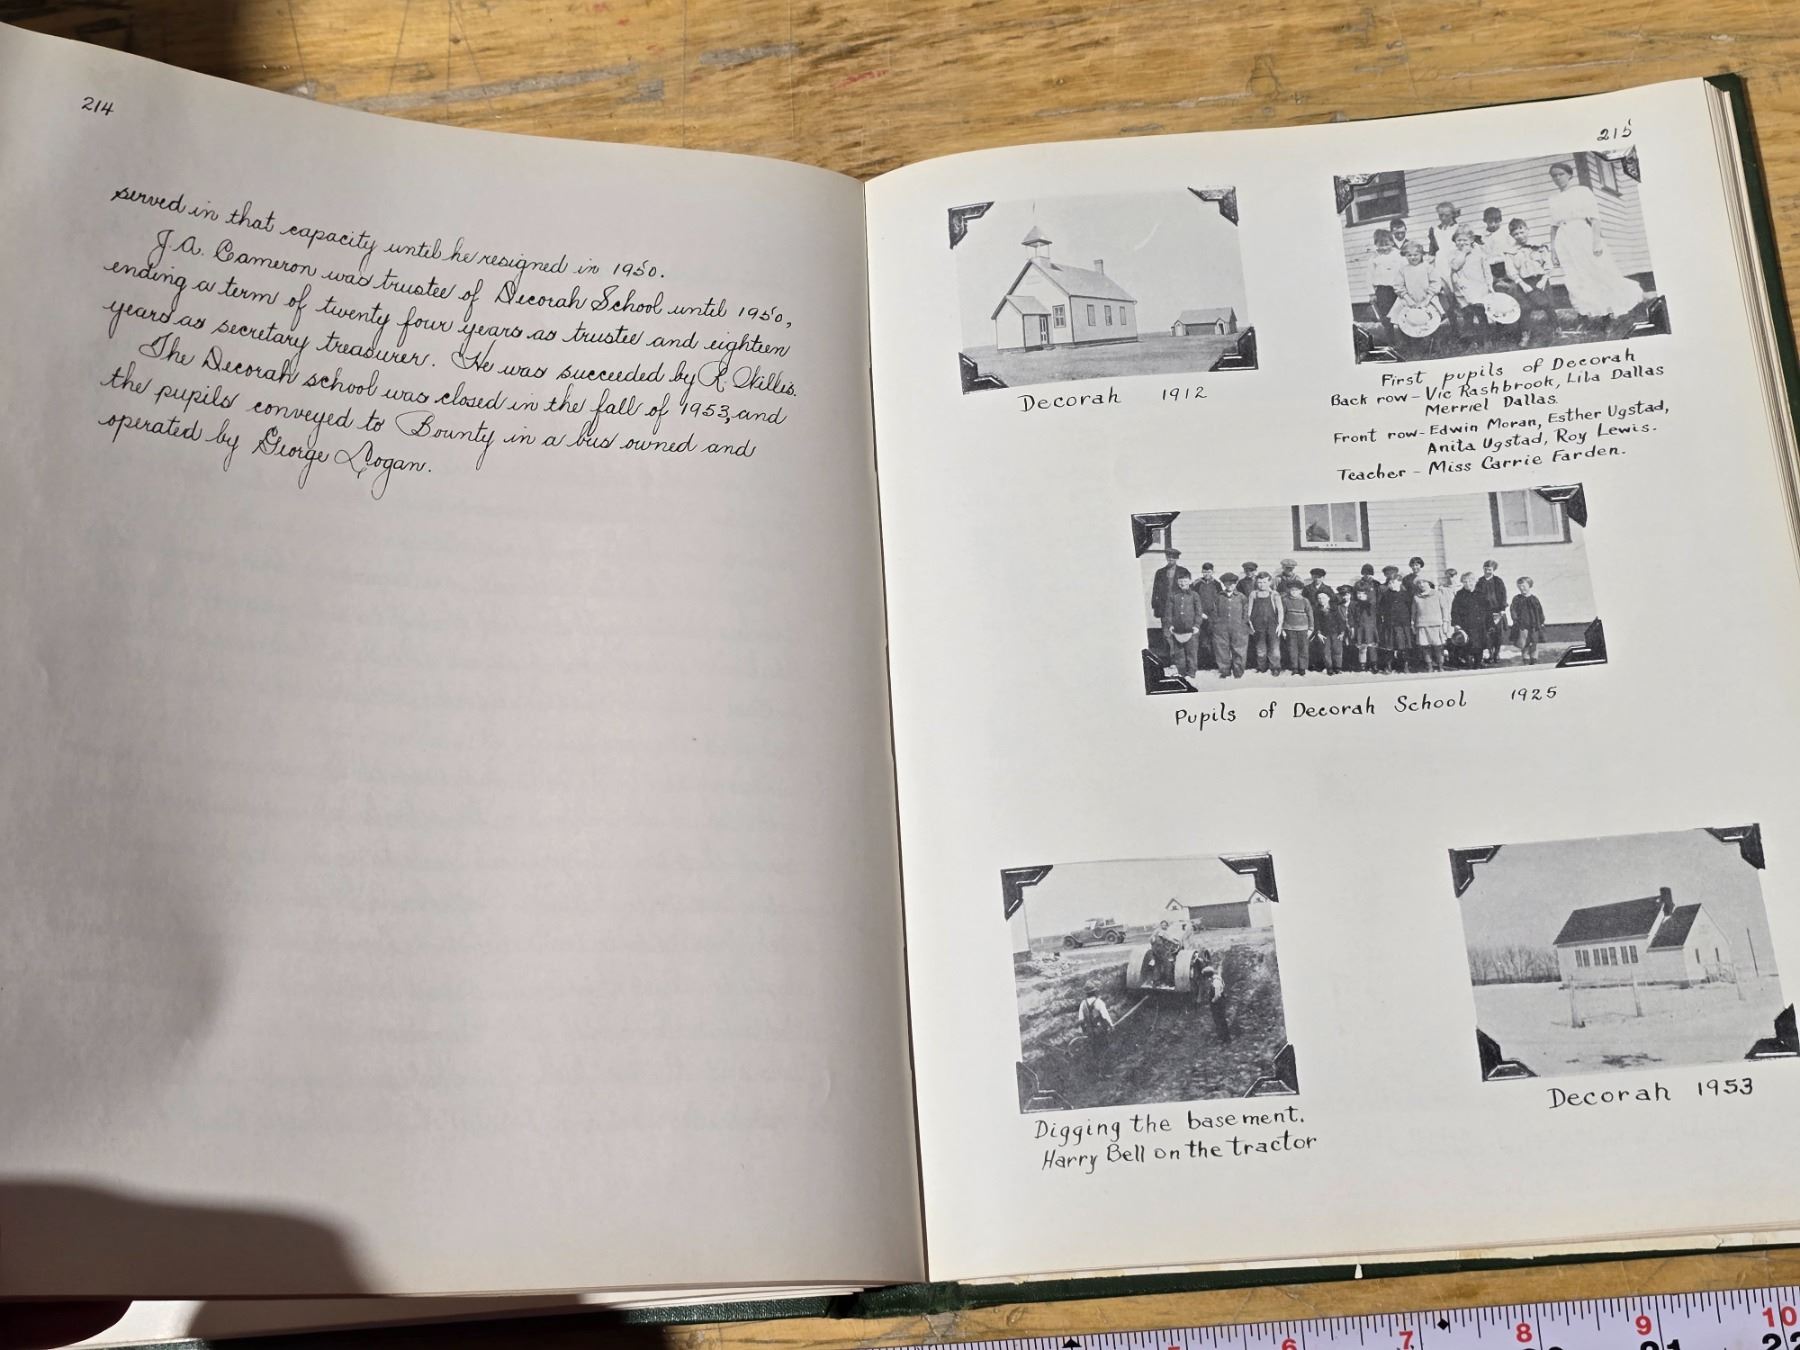 214
served in that capacity until he resigned in 1950.
J.A. Cameron was trustee of Decorah School until 1950,
ending a term of twenty four years as trustee and eighteen
years as secretary treasurer. He was succeeded by R. Willis.
The Decorah school was closed in the fall of 1953, and
the pupils conveyed to Bounty in a bus owned and
operated by George Logan.
215
Decorah 1912
First pupils of Decorah
Back row - Vic Rashbrook, Lila Dallas
Merriel Dallas.
Front row - Edwin Moran, Esther Ugstad,
Anita Ugstad, Roy Lewis.
Teacher - Miss Carrie Farden.
Pupils of Decorah School 1925
Digging the basement.
Harry Bell on the tractor
Decorah 1953
6 7 8 9 10